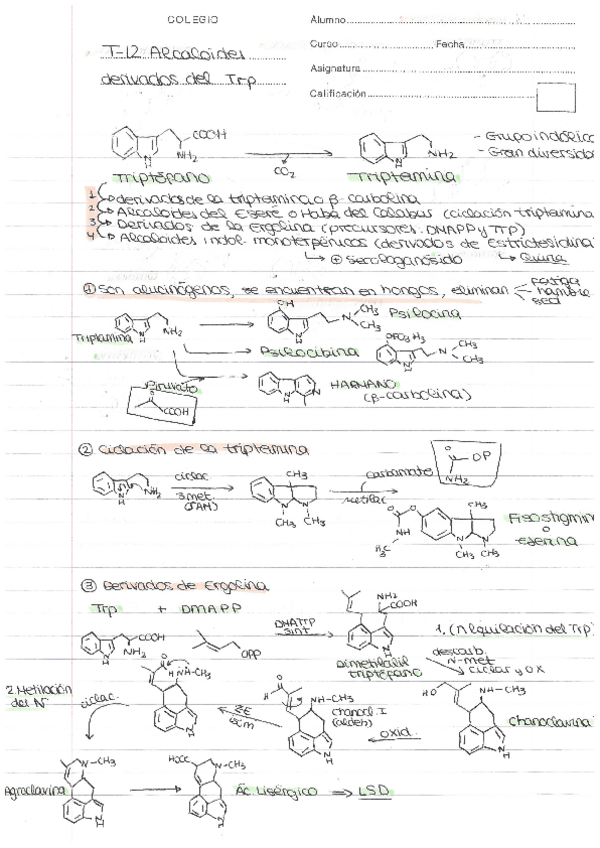 COLEGIO
Alumno
Curso Fecha
Asignatura
Calificación
T-12 Alcaloides
derivados del Trp
COOH
NH2
N
H
CO2
NH2
N
H
- Grupo indólico
- Gran diversidad
Triptófano
Triptamina
1 derivados de la triptamina o β-carbolina
2 Alcaloides del Esere o Haba del Calabar (ciclación triptamina
3 Derivados de la Ergolina (precursores: DMAPP y Trp)
4 Alcaloides indol. monoterpénicos (derivados de Estrictosidina
⊕ secologanósido
Quina
① Son alucinógenos, se encuentran en hongos, eliminan
fatiga
hambre
sed
OH
CH3
N
CH3
Psilocina
Triptamina
NH2
Psilocibina
OPO3H2
CH3
N
CH3
Piruvato
COOH
HARMANO
(β-carbolina)
② Ciclación de la triptamina
NH2
ciclac.
3 met.
(SAM)
CH3
N N
CH3 CH3
carbamato
metilac
O
OP
NH2
O
NH
H3C
CH3
N N
CH3 CH3
Fisostigmina
o
eserina
③ Derivados de Ergolina
Trp + DMAPP
COOH
NH2
OPP
DMATTP
sint
NH2
COOH
1. (Alquilación del Trp)
Dimetilalil
triptófano
descarb.
N-met
ciclar y ox
2. Metilación
del N
ciclac.
NH-CH3
isom
NH-CH3
chanocl. I
(aldeh)
oxid.
HO
NH-CH3
chanoclavina
Agroclavina
N-CH3
HOOC
N-CH3
Ác. Lisérgico ⇒ LSD